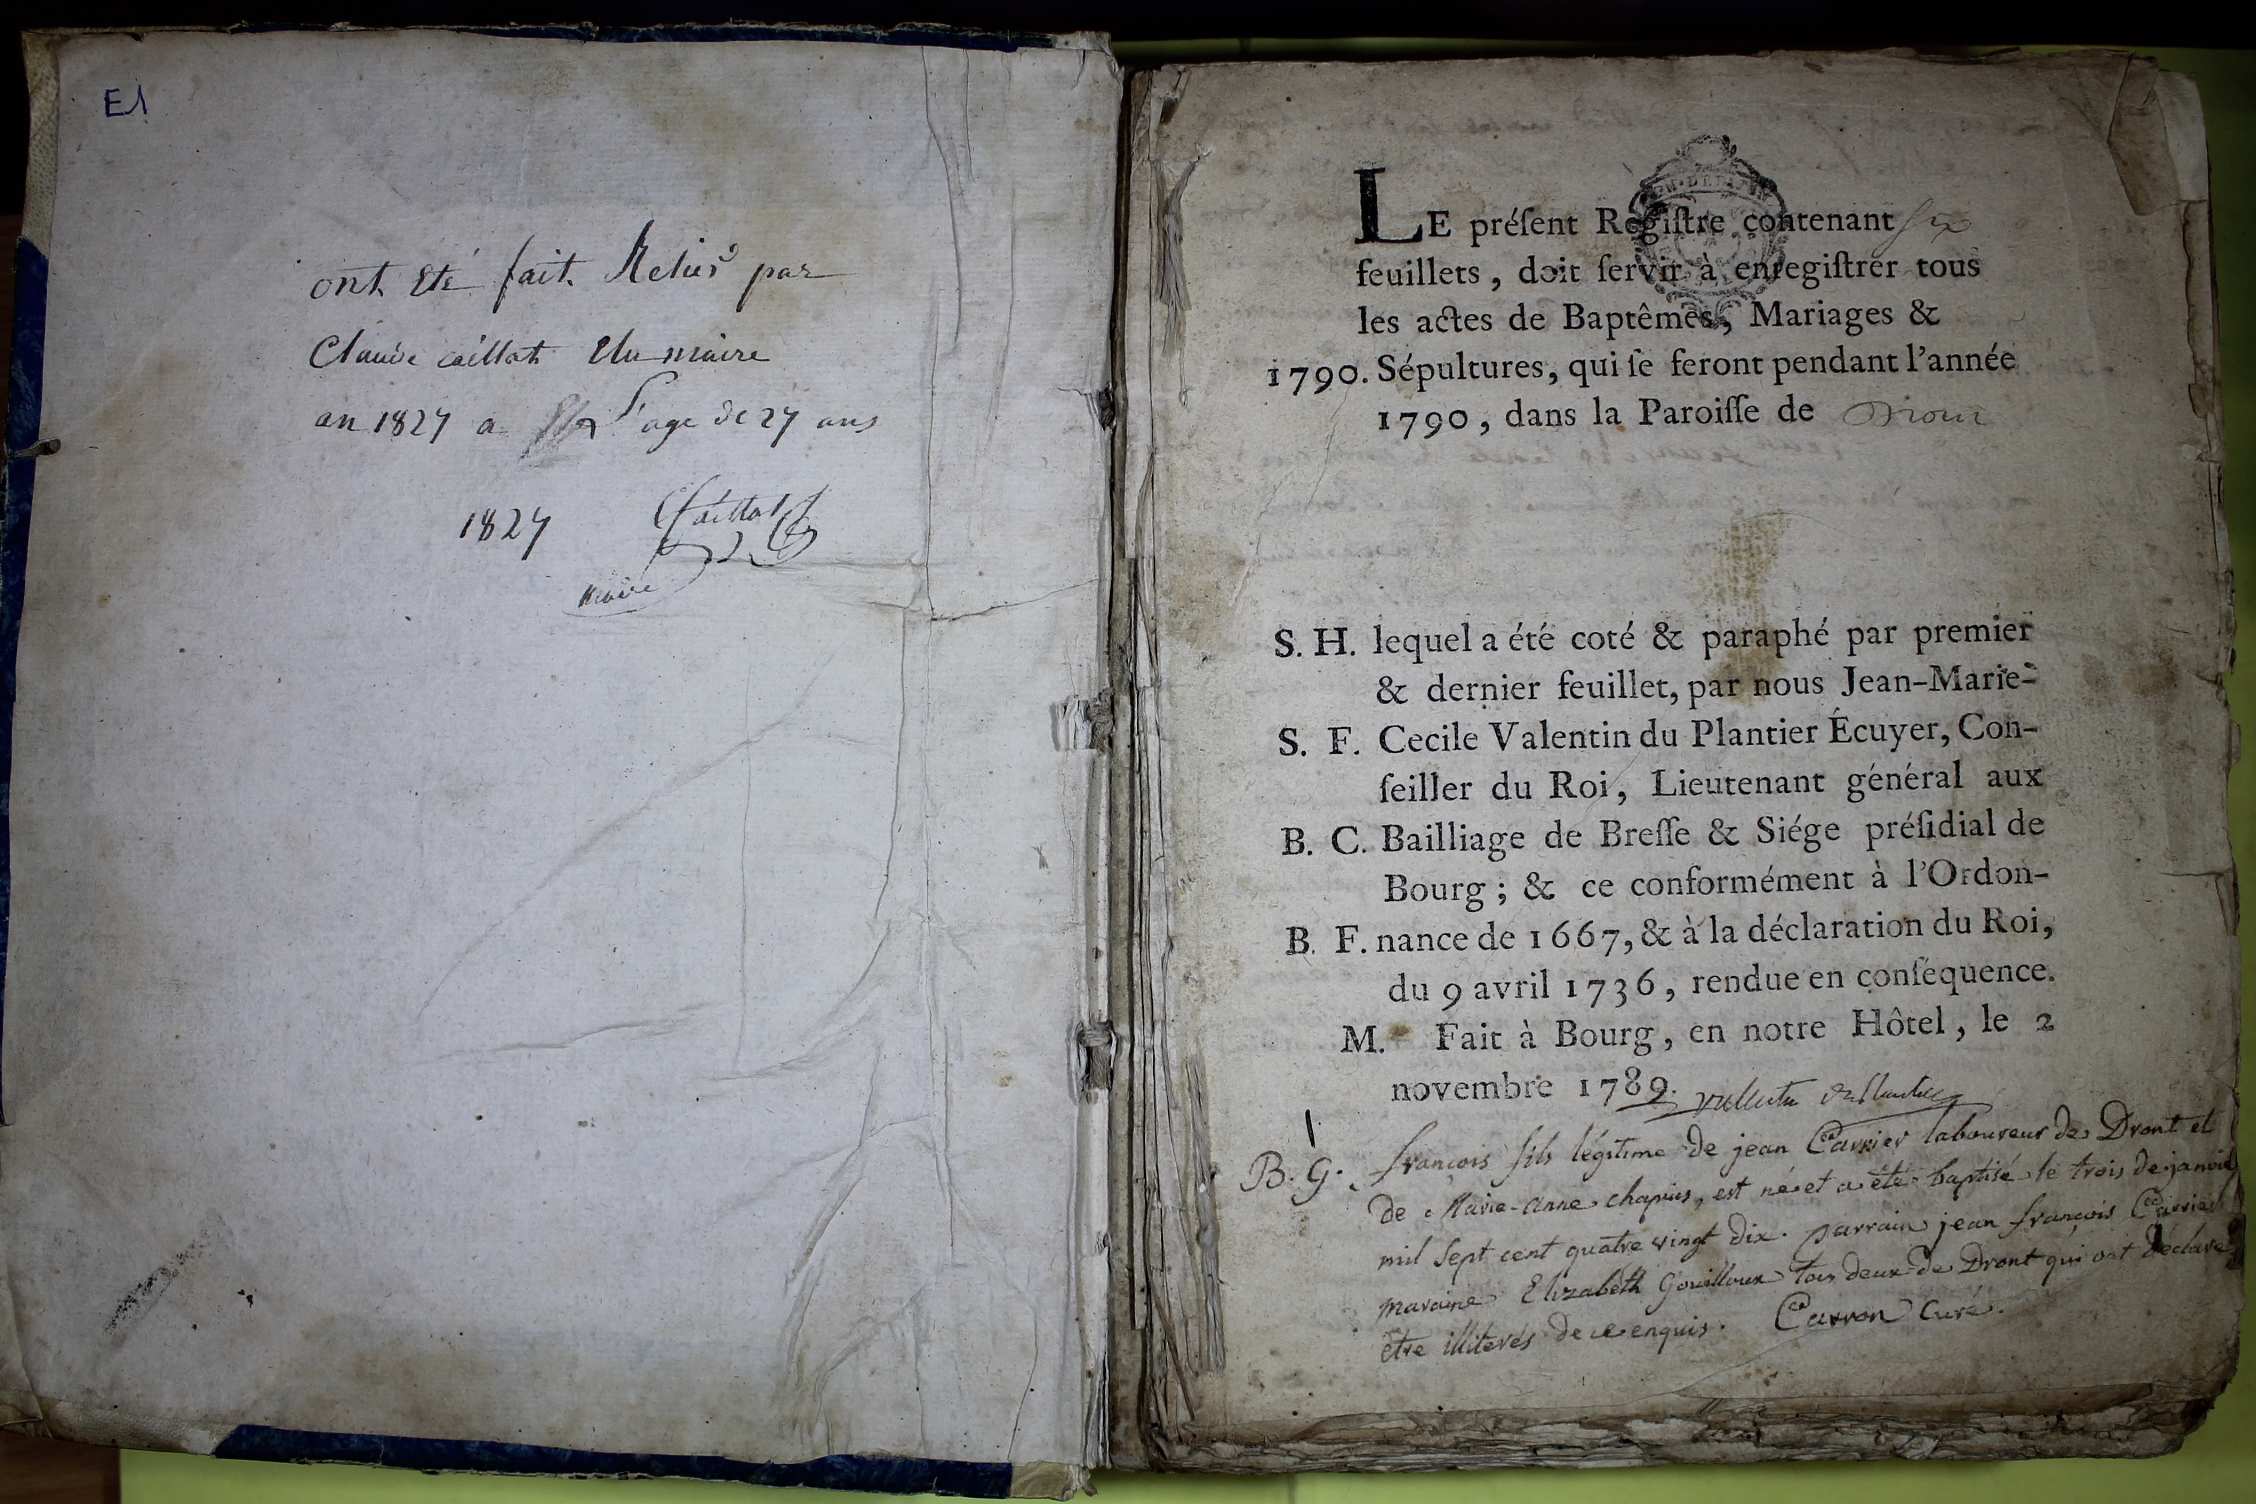 E1
ont été fait Relier par
Claude caillat Elu maire
an 1827 a l'age de 27 ans
1827 Caillat
maire
LE préſent Regiſtre contenant ſix
feuillets, doit ſervir à enregiſtrer tous
les actes de Baptêmes, Mariages &
1790. Sépultures, qui ſe feront pendant l'année
1790, dans la Paroiſſe de Drom
S. H. lequel a été coté & paraphé par premier
& dernier feuillet, par nous Jean-Marie-
S. F. Cecile Valentin du Plantier Écuyer, Con-
ſeiller du Roi, Lieutenant général aux
B. C. Bailliage de Breſſe & Siége préſidial de
Bourg; & ce conformément à l'Ordon-
B. F. nance de 1667, & à la déclaration du Roi,
du 9 avril 1736, rendue en conſéquence.
M. Fait à Bourg, en notre Hôtel, le 2
novembre 1789.
1.
B. G. françois fils légitime de jean Carrier laboureur de Dront et
de Marie-Anne chapuis, est né et a été baptisé le trois de janvier
mil sept cent quatre vingt dix. parrain jean françois Carrier
maraine Elizabeth Gouilloux tous deux de Dront qui ont déclaré
être illiterés de ce enquis. Carron Curé.